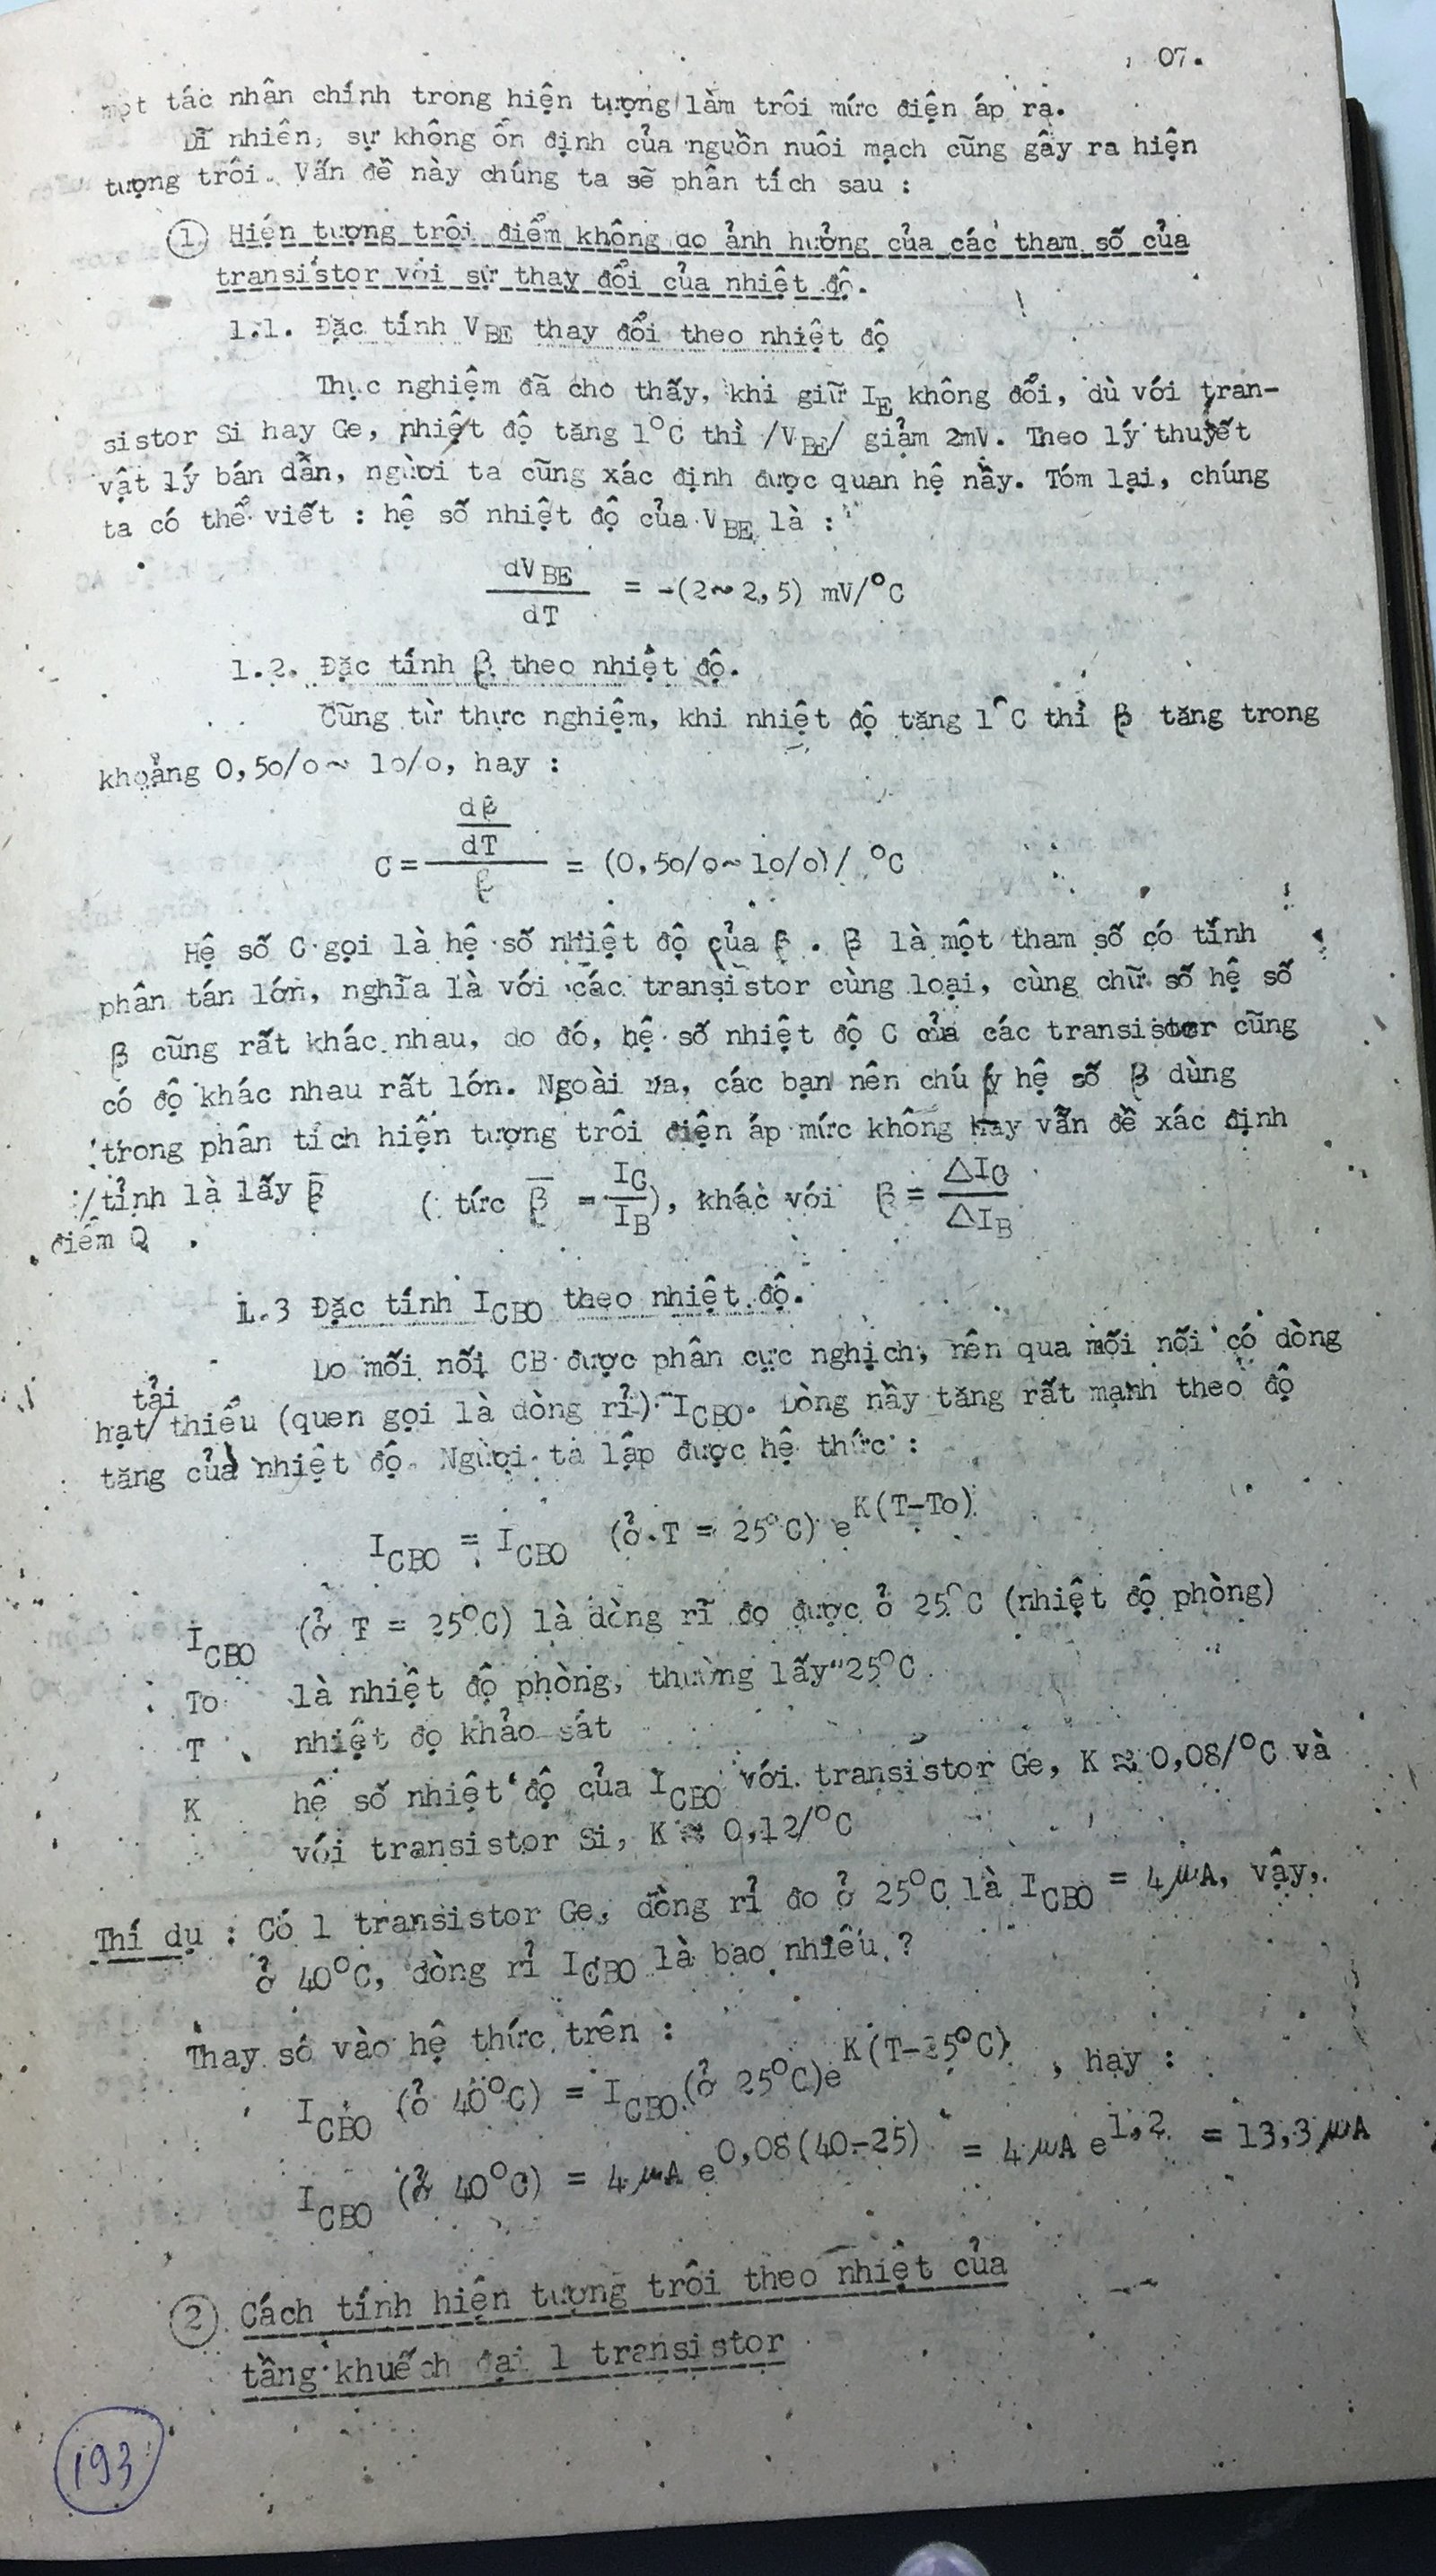 07.
một tác nhân chính trong hiện tượng làm trôi mức điện áp ra.
Dĩ nhiên, sự không ổn định của nguồn nuôi mạch cũng gây ra hiện
tượng trôi. Vấn đề này chúng ta sẽ phân tích sau :
1 Hiện tượng trôi điểm không do ảnh hưởng của các tham số của
transistor với sự thay đổi của nhiệt độ.
1.1. Đặc tính V_BE thay đổi theo nhiệt độ
Thực nghiệm đã cho thấy, khi giữ I_E không đổi, dù với tran-
sistor Si hay Ge, nhiệt độ tăng 1°C thì /V_BE/ giảm 2mV. Theo lý thuyết
vật lý bán dẫn, người ta cũng xác định được quan hệ nầy. Tóm lại, chúng
ta có thể viết : hệ số nhiệt độ của V_BE là :
dV_BE / dT = -(2~2,5) mV/°C
1.2. Đặc tính β theo nhiệt độ.
Cũng từ thực nghiệm, khi nhiệt độ tăng 1°C thì β tăng trong
khoảng 0,5o/o ~ 1o/o, hay :
C = (dβ/dT) / β = (0,5o/o ~ 1o/o)/ °C
Hệ số C gọi là hệ số nhiệt độ của β . β là một tham số có tính
phân tán lớn, nghĩa là với các transistor cùng loại, cùng chữ số hệ số
β cũng rất khác nhau, do đó, hệ số nhiệt độ C của các transistor cũng
có độ khác nhau rất lớn. Ngoài ra, các bạn nên chú ý hệ số β dùng
trong phân tích hiện tượng trôi điện áp mức không hay vấn đề xác định
/tỉnh là lấy β̄ ( tức β̄ = I_C/I_B), khác với β = ΔI_C/ΔI_B
điểm Q
1.3 Đặc tính I_CBO theo nhiệt độ.
Do mối nối CB được phân cực nghịch, nên qua mối nối có dòng
tải
hạt/ thiểu (quen gọi là dòng rỉ) I_CBO. Dòng nầy tăng rất mạnh theo độ
tăng của nhiệt độ. Người ta lập được hệ thức :
I_CBO = I_CBO (ở T = 25°C) e^K(T-To)
I_CBO (ở T = 25°C) là dòng rĩ đo được ở 25°C (nhiệt độ phòng)
To là nhiệt độ phòng, thường lấy 25°C
T nhiệt đọ khảo sát
K hệ số nhiệt độ của I_CBO với transistor Ge, K ≈ 0,08/°C và
với transistor Si, K ≈ 0,12/°C
Thí dụ : Có 1 transistor Ge, dòng rỉ đo ở 25°C là I_CBO = 4 μA, vậy,
ở 40°C, dòng rỉ I_CBO là bao nhiêu ?
Thay số vào hệ thức trên :
I_CBO (ở 40°C) = I_CBO (ở 25°C)e^K(T-25°C) , hay :
I_CBO (ở 40°C) = 4 μA e^0,08(40-25) = 4 μA e^1,2 = 13,3 μA
2 Cách tính hiện tượng trôi theo nhiệt của
tầng khuếch đại 1 transistor
193